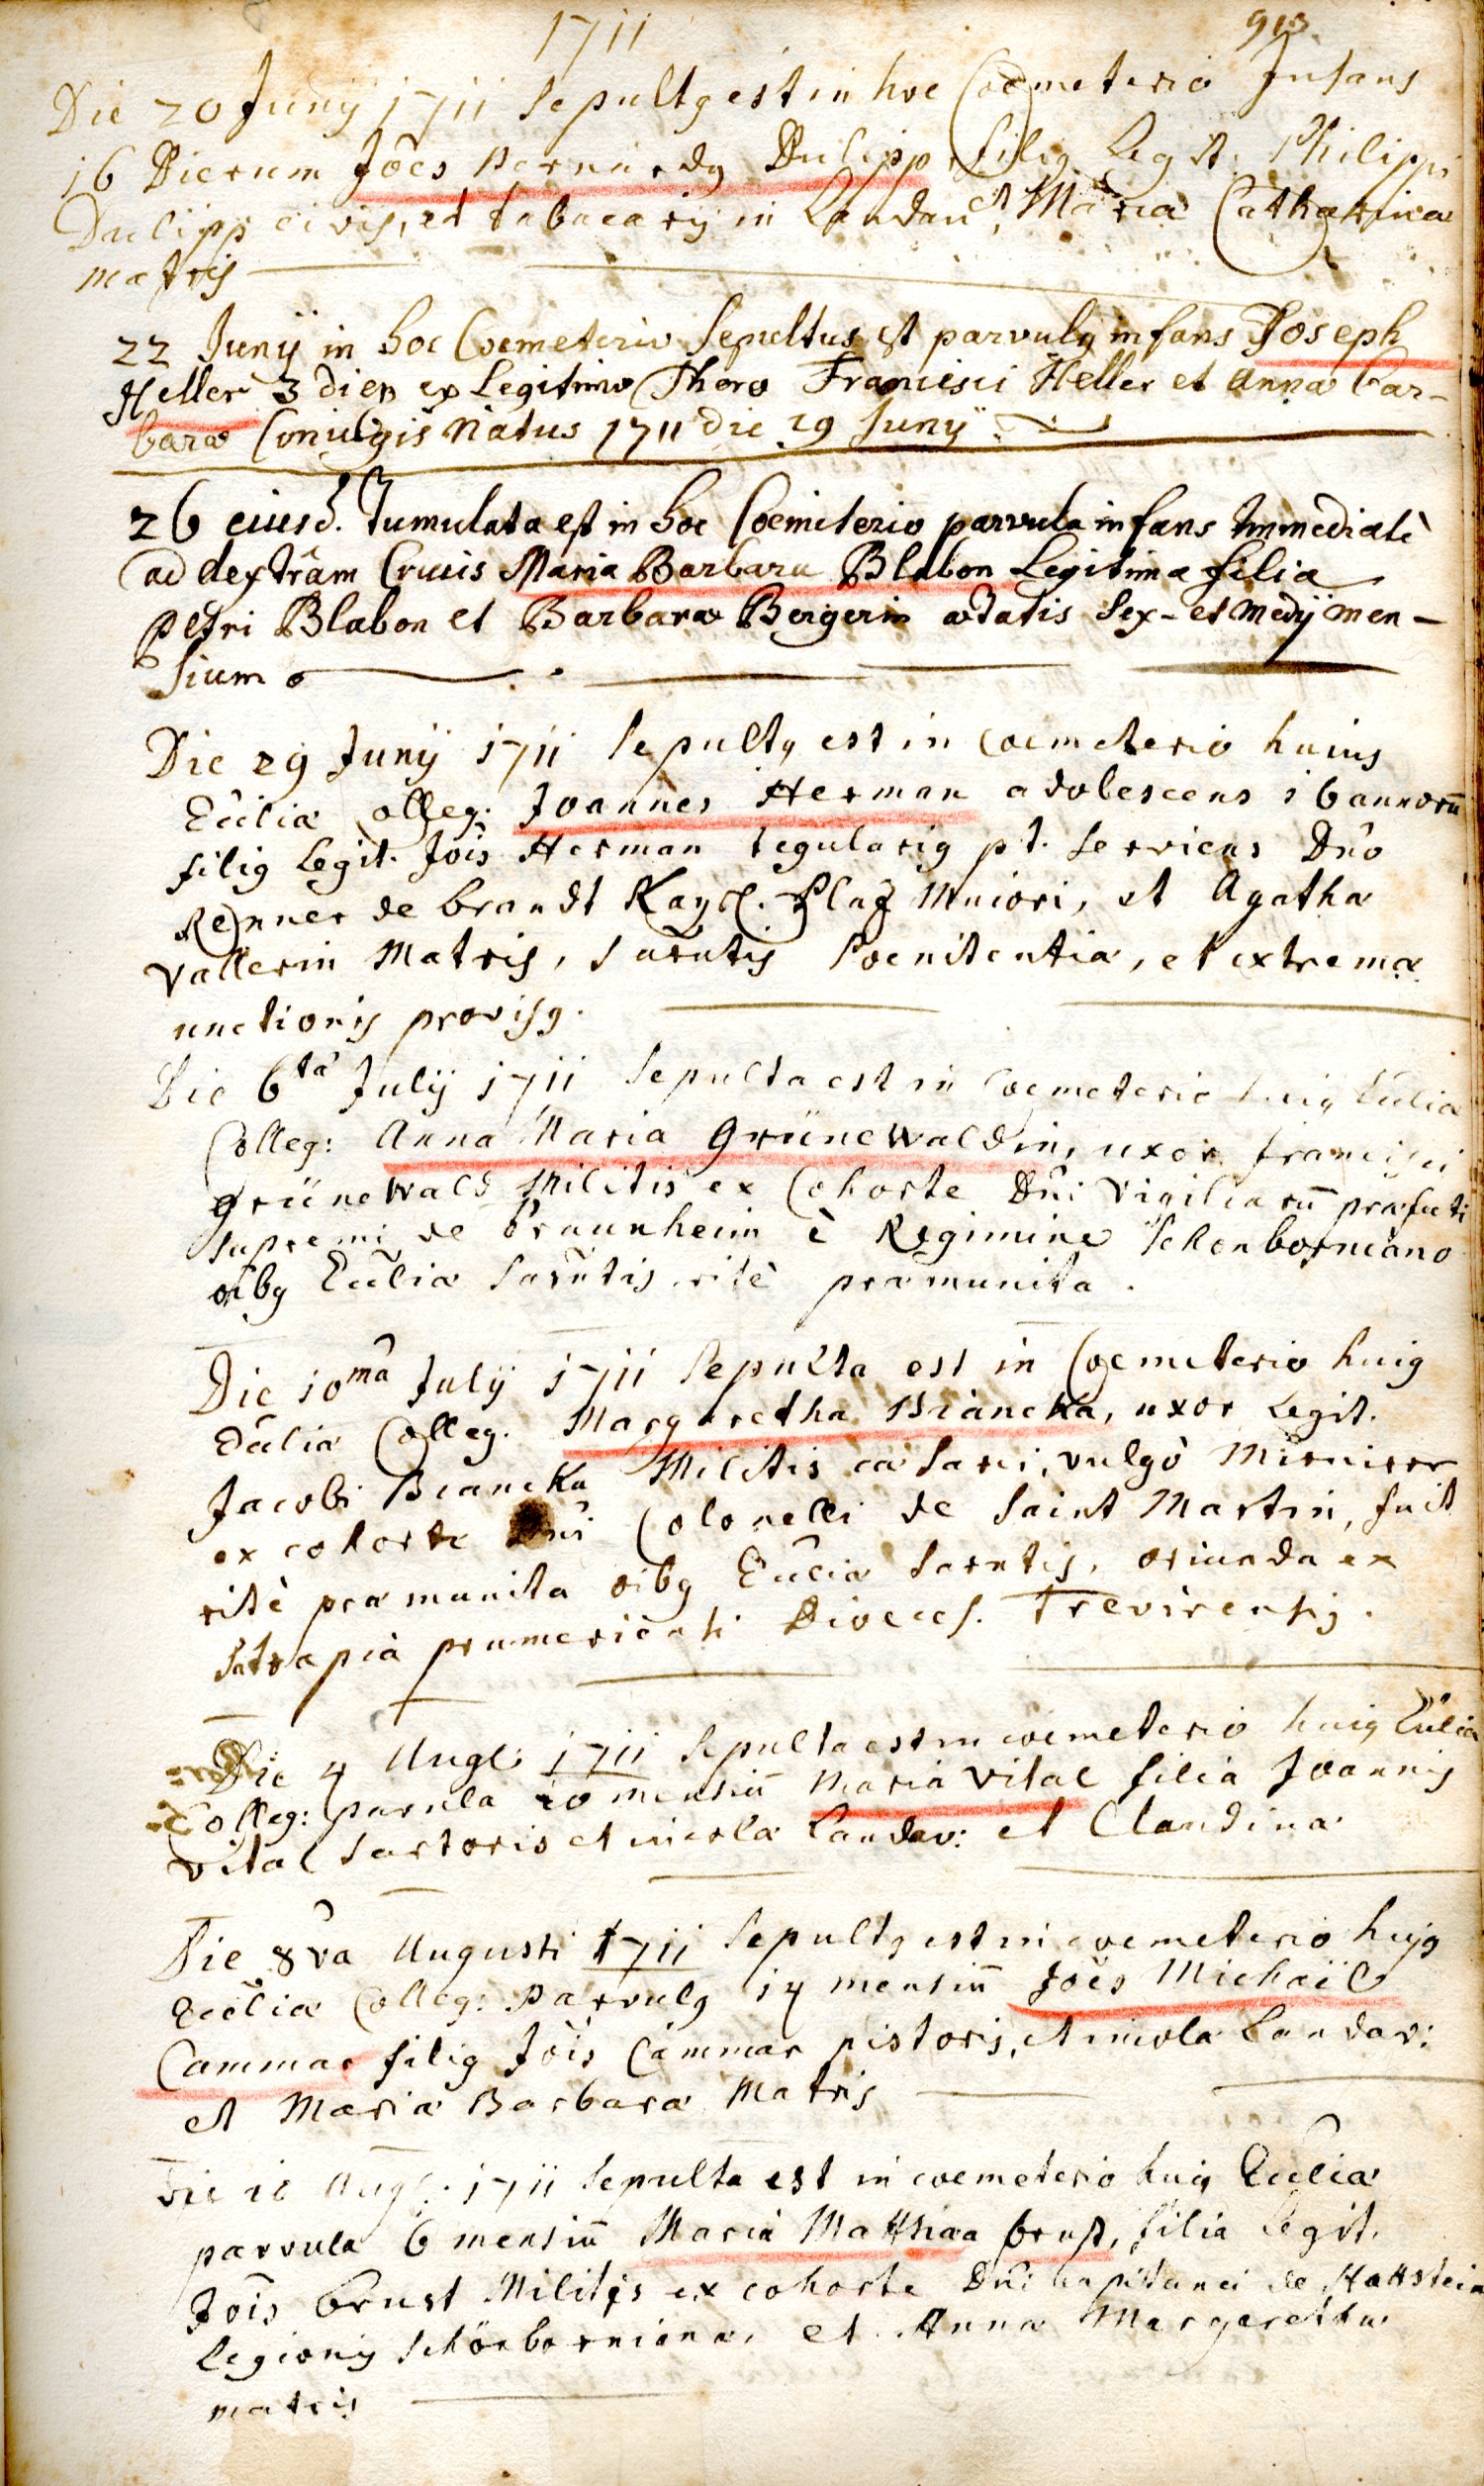 1711
913
Die 20 Junij 1711 Sepultg est in hoc Coemeterio Infans
16 Dierum Jões Bernardg Dulipp filig Legit. Philippi
Dulipp civis, et tabacarij in Landau, et Maria Catharina
matris
22 Junij in hoc Coemeterio Sepultus est parvulg infans Joseph
Heller 3 dierum ex Legitimo Thoro Francisci Heller et Annæ Bar-
baræ Coniugis Natus 1711 die 19 Junij
26 eiusd. Tumulata est in hoc Coemiterio parvula infans Immediatè
ad dextram Crucis Maria Barbara Blabon Legitima filia
Petri Blabon et Barbaræ Bergerin ætatis Sex- et medij men-
sium
Die 29 Junij 1711 Sepultg est in Coemeterio huius
Eccliæ Colleg: Joannes Herman adolescens 16 annorū
filig Legit. Jõis Herman tegularig pt. serviens Dño
Renner de brandt Kayſ. Plaz Maiori, et Agatha
Vallerin Matris, Sacrãtis Poenitentiæ, et extremæ
unctionis provisg.
Die 6ta Julij 1711 Sepulta est in Coemeterio huig Eccliæ
Colleg: Anna Maria Grünewaldin, uxor Francisci
Grünewald Militis ex Cohorte Dñi Vigiliarū præfecti
supremi de Braunheim è Regimine Schonborniano
oibg Eccliæ Sacrãtis ritè præmunita.
Die 10ma Julij 1711 Sepulta est in Coemeterio huig
Eccliæ Colleg. Margaretha Biancka, uxor Legit.
Jacobi Biancka Militis cæsarei, vulgò
ex cohorte Dñi Colonelli de Saint Martin, fuit
ritè præmunita oibg Eccliæ Sacrãtis, oriunda ex
Satrapia Diœces. Trevirensis.
Die 4 Augl: 1711 Sepulta est in coemeterio huig Eccliæ
Colleg: parvula 10 mensiū Maria Vital filia Joannis
Vital Sartoris et incolæ Landav: et Claudina
Die 8va Augusti 1711 Sepultg est in coemeterio hujg
Eccliæ Colleg: parvulg 14 mensiū Jões Michaël
Cammar filig Jõis Cammar pistoris, et incolæ Landav:
et Mariæ Barbaræ Matris
Die Augl: 1711 Sepulta est in coemeterio huig Eccliæ
parvula 6 mensiū Maria Matthæa Ernst, filia Legit.
Jõis Ernst Militis ex cohorte Dñi Capitanei de Hattstein
Legionis Schönbornianæ, et Anna Margaretha
matris